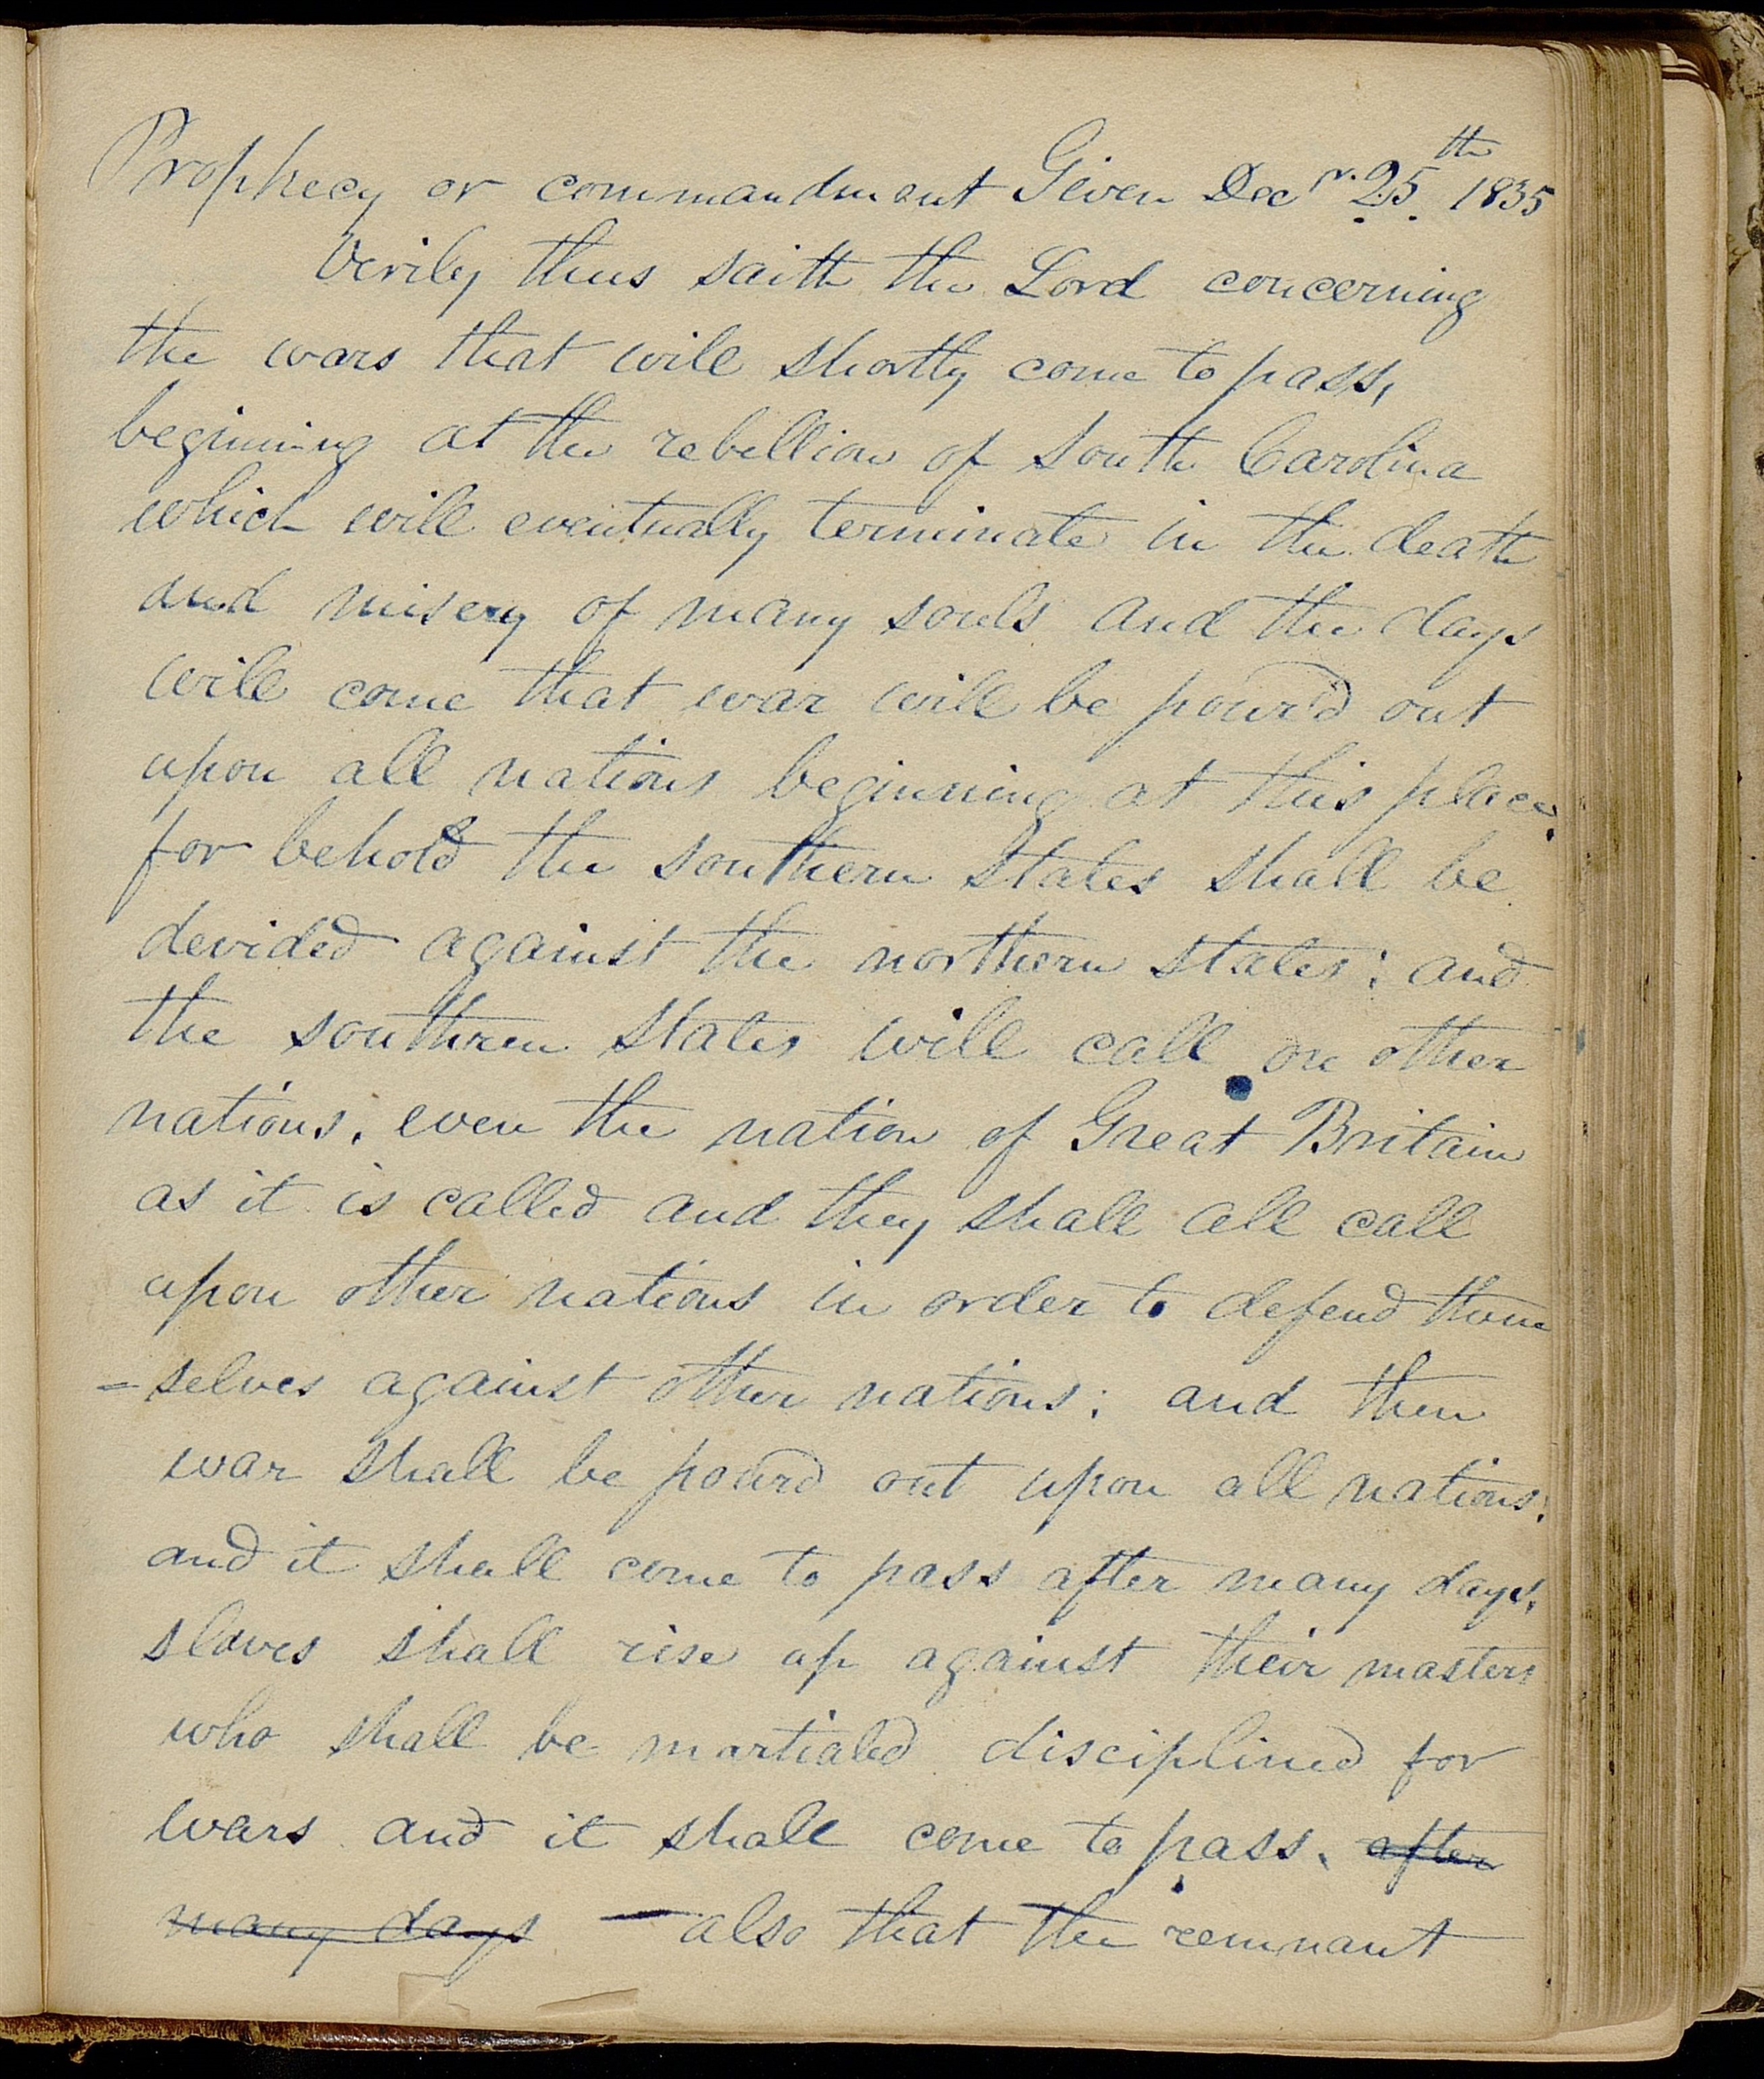 Prophecy or commandment Given Decr. 25th 1835
Verily thus saith the Lord concerning
the wars that will shortly come to pass,
beginning at the rebellion of South Carolina
which will eventually terminate in the death
and misery of many souls and the days
will come that war will be pour'd out
upon all nations beginning at this place.
for behold the southern States shall be
devided against the northern states; and
the southren states will call on other
nations, even the nation of Great Britain
as it is called and they shall all call
upon other nations in order to defend them
=selves against other nations; and then
war shall be pourd out upon all nations;
and it shall come to pass after many days,
slaves shall rise up against their masters
who shall be martialed disciplined for
wars and it shall come to pass, after
many days — also that the remnant